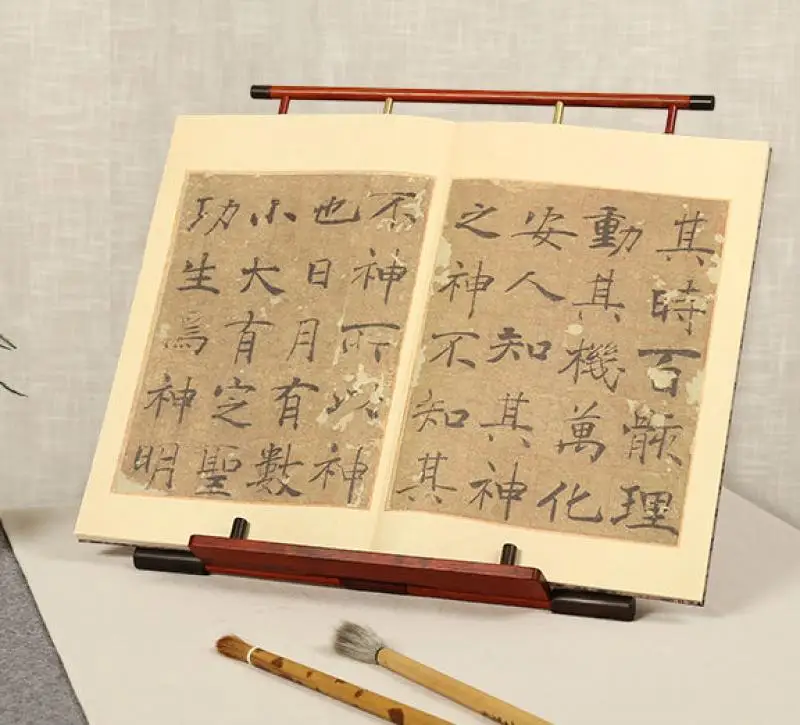 其時百骸理
動其機萬化
安人知其神
之神不知其
不神所以神
也日月有數
小大有定聖
功生焉神明